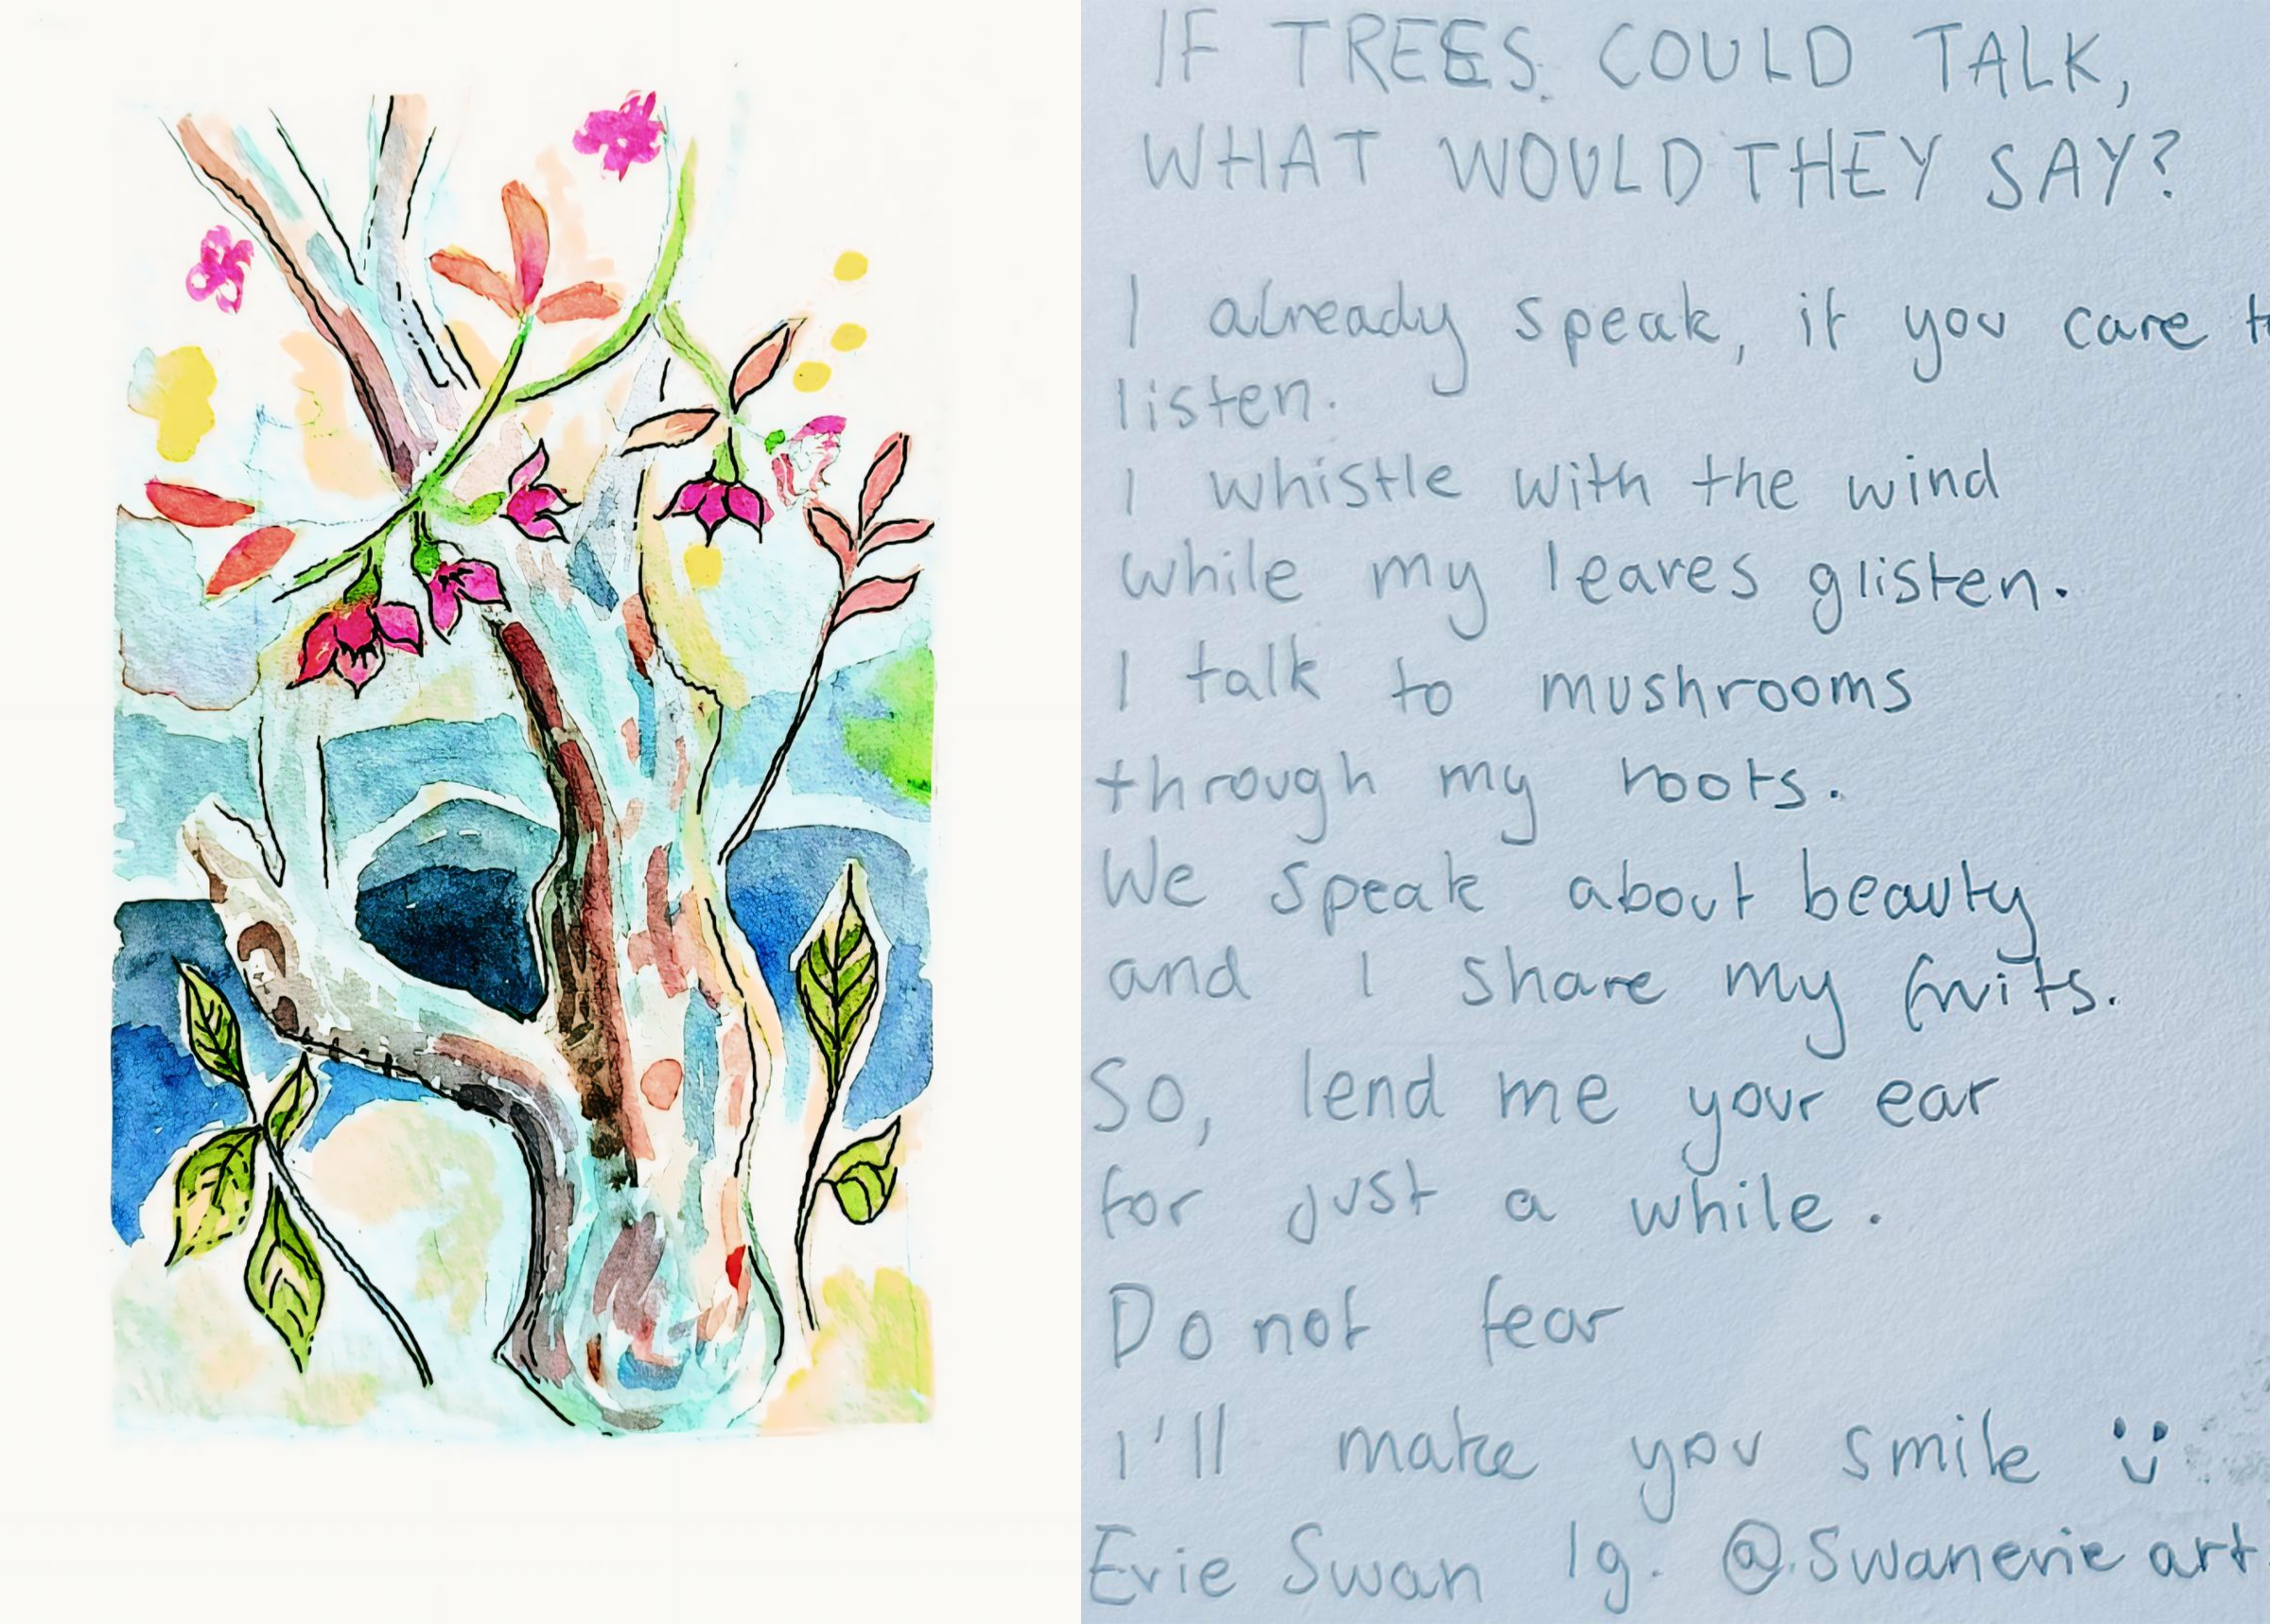 IF TREES. COULD TALK,
WHAT WOULD THEY SAY?
I already speak, if you care to
listen.
I whistle with the wind
while my leaves glisten.
I talk to mushrooms
through my roots.
We speak about beauty
and I share my fruits.
So, lend me your ear
for just a while.
Do not fear
I'll make you smile
Evie Swan Ig. @swanevie art